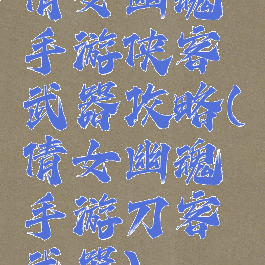 倩女幽魂
手游侠客
武器攻略(
倩女幽魂
手游刀客
武器)